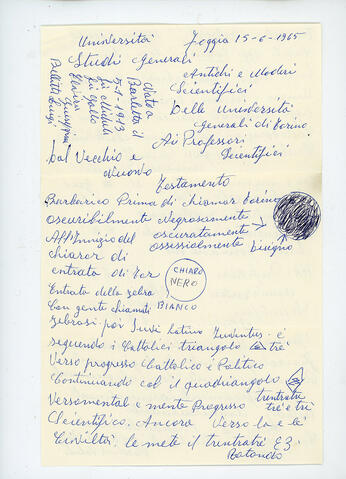 Università Foggia 15-6-1965
Studi Generali
Antichi e Moderi
Scientifici
Delle Università
Generali di Torino
Ai Professori
Scientifici
nato a
Barletta il
5-1-1913
di Michele
di
Elvira
Giuseppina
Bellitti Luigi
Dal Vecchio e
Nuovo
Testamento
Barbarico Prima di chiamar Torino
oscuribilmente Negrosamente
oscuratamente
All'Innizio del ossessialmente Bìùgno
chiaror di
entrata di
CHIARO
NERO
BIANCO
Entrata della zebra
Con gente chiamati
Zebrosi-poi latino Juventus-é
seguendo i Cattolici triangolo tré
Verso progresso Cattolico é Politico
Continuando col il quadriangolo
trentratre
Versomental e mente Progresso tré e tré
Scientifico. Ancora Verso la e lé
Civiltà. le mete il trentratré